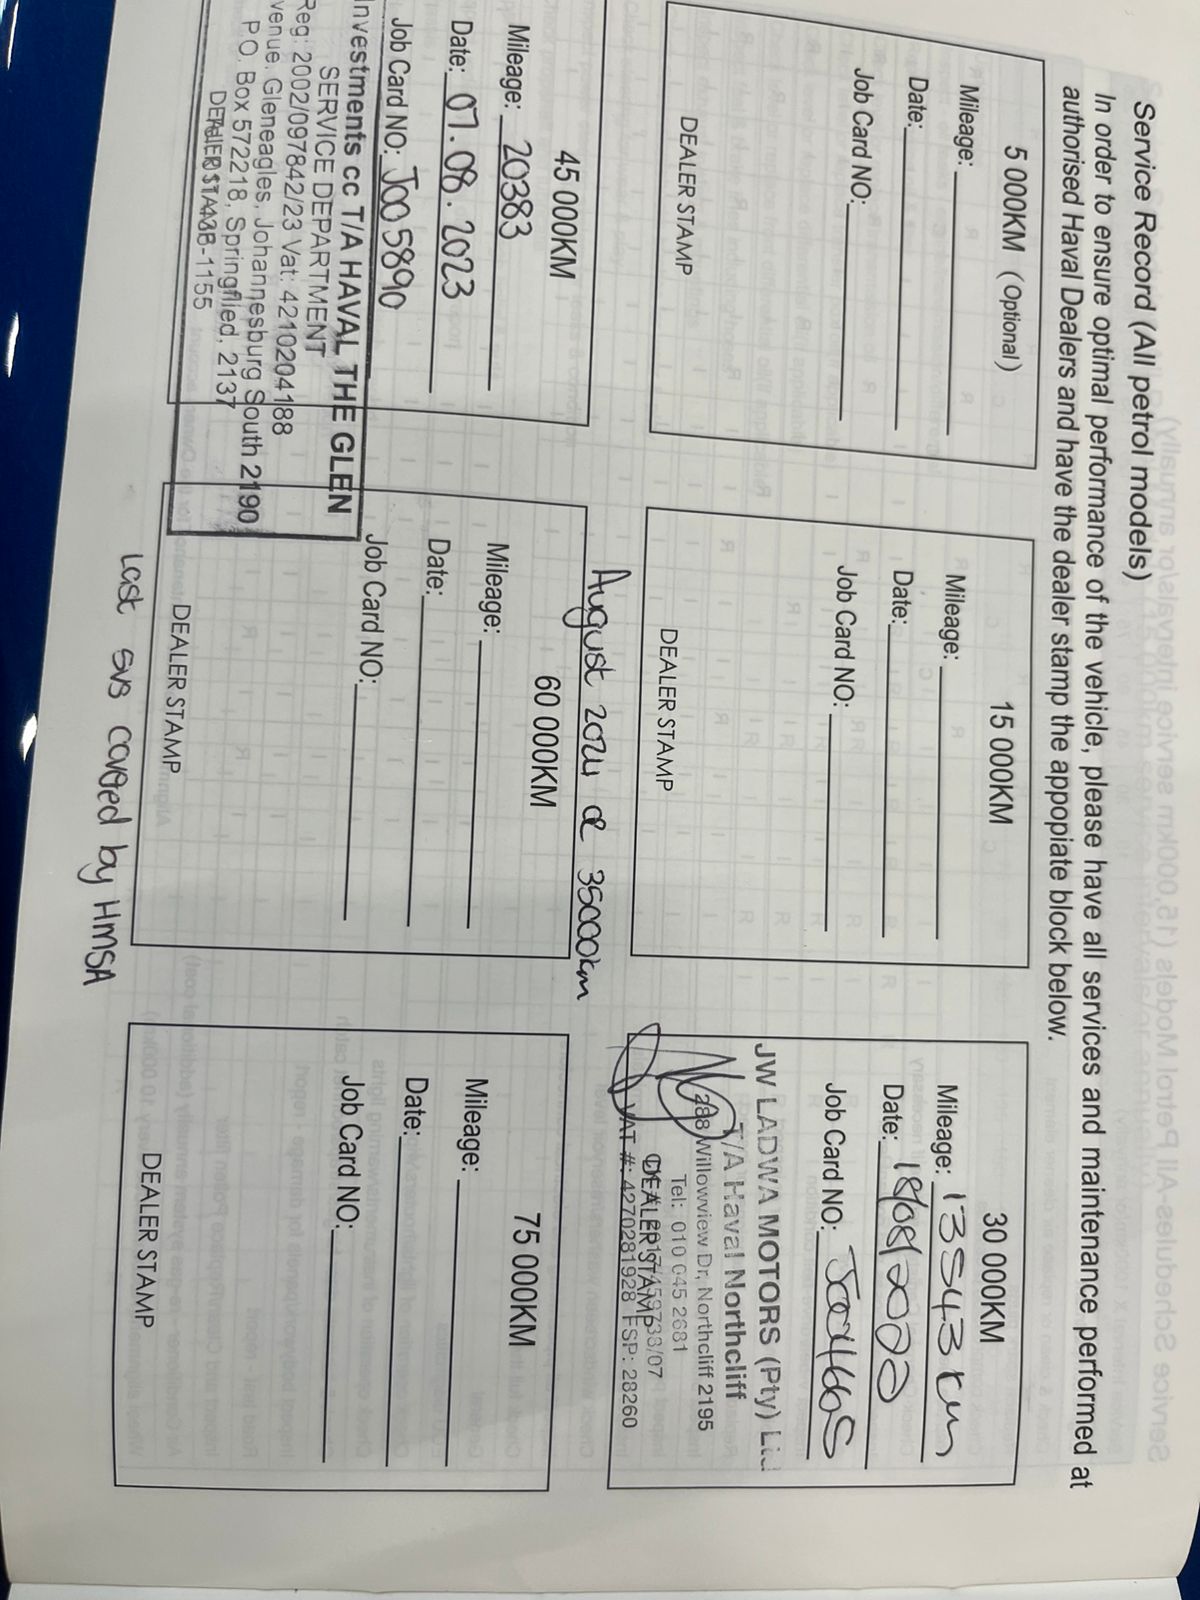 Service Record (All petrol models)
In order to ensure optimal performance of the vehicle, please have all services and maintenance performed at
authorised Haval Dealers and have the dealer stamp the appopiate block below.
5 000KM (Optional)
Mileage:
Date:
Job Card NO:
DEALER STAMP
15 000KM
Mileage:
Date:
Job Card NO:
DEALER STAMP
30 000KM
Mileage: 13543 km
Date: 18/08/2022
Job Card NO:
JW LADWA MOTORS (Pty) Ltd
T/A Haval Northcliff
288 Willowview Dr, Northcliff 2195
Tel: 010 045 2681
DEALER STAMP
VAT #: 4270281928 FSP: 28260
45 000KM
Mileage: 20383
Date: 07.08.2023
Job Card NO: J005890
Investments cc T/A HAVAL THE GLEN
SERVICE DEPARTMENT
Reg: 2002/097842/23 Vat: 4210204188
venue, Gleneagles, Johannesburg South 2190
P.O. Box 572218, Springfiled, 2137
DEALER STAMP
August 2024 @ 35000km
60 000KM
Mileage:
Date:
Job Card NO:
DEALER STAMP
75 000KM
Mileage:
Date:
Job Card NO:
DEALER STAMP
Last svs covered by HMSA